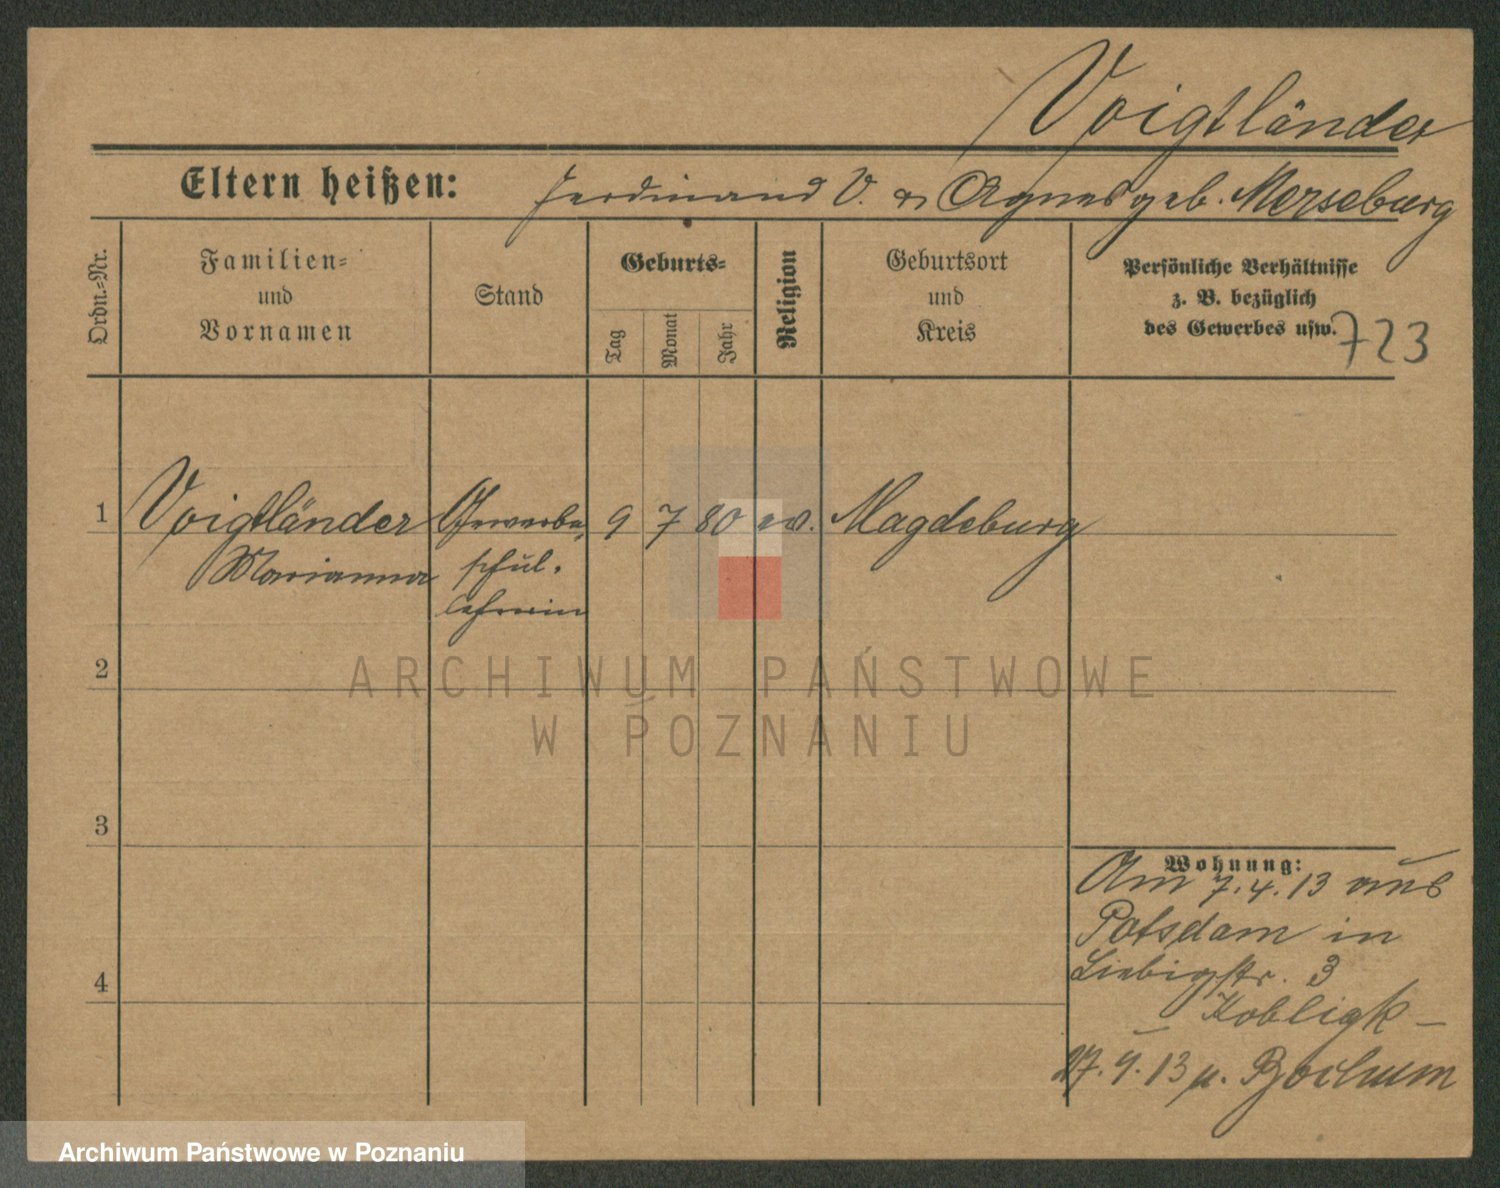 Voigtländer
Eltern heißen: Ferdinand V. u Agnes geb. Merseburg
Ordn.-Nr.
Familien-
und
Vornamen
Stand
Geburts-
Tag
Monat
Jahr
Religion
Geburtsort
und
Kreis
Persönliche Verhältnisse
z. B. bezüglich
des Gewerbes usw.
723
1 Voigtländer Gewerbe 9 7 80 ev. Magdeburg
Marianna schul-
lehrerin
2
ARCHIWUM PAŃSTWOWE
W POZNANIU
3
Wohnung:
Am 7.4.13 aus
Potsdam in
4 Liebigstr. 3
27.9.13 n. Bochum
Archiwum Państwowe w Poznaniu